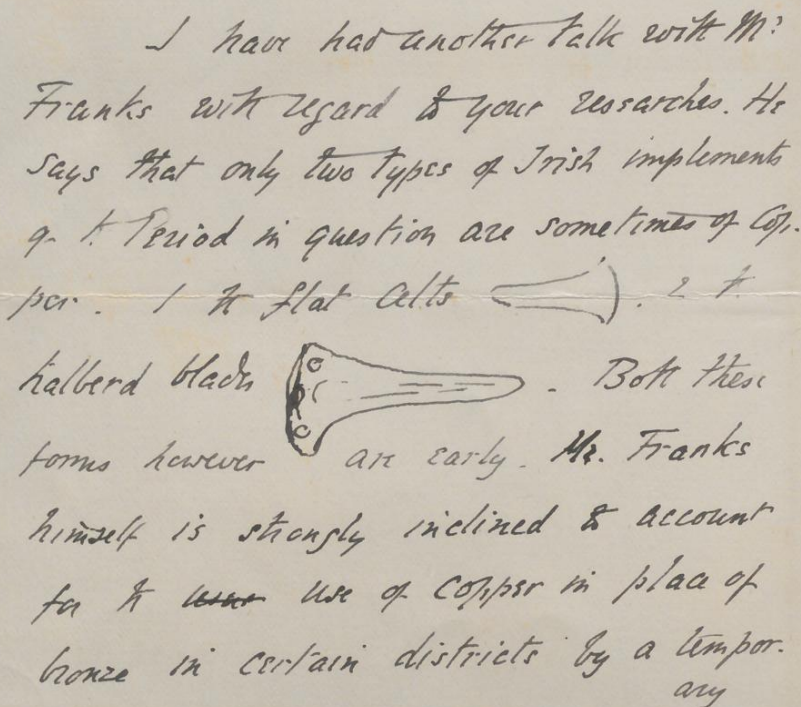 I have had another talk with Mr
Franks with regard to your researches. He
says that only two types of Irish implements
of t. Period in question are sometimes of Cop-
per. 1 t flat Celts . 2 t.
halberd blades . Both these
forms however are early. Mr. Franks
himself is strongly inclined to account
for t use of copper in place of
bronze in certain districts by a tempor-
ary